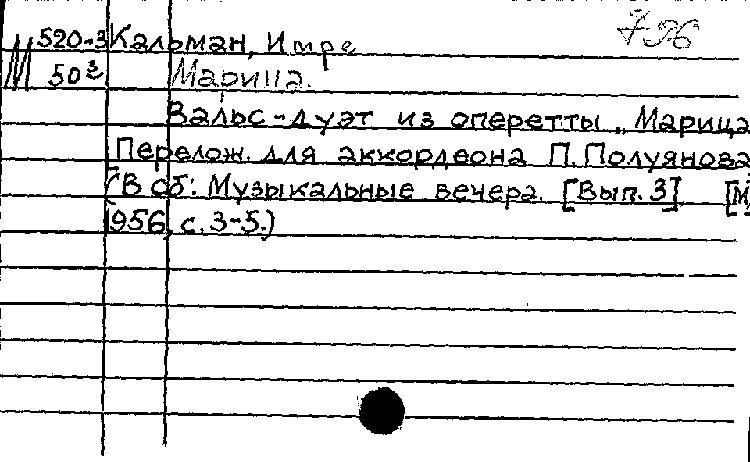 М 520-3 Кальман, Имре
50з Марица.
Вальс-дуэт из оперетты „Марица
Перелож. для аккордеона П. Полуянова
(В сб: Музыкальные вечера. [Вып. 3] [М
1956, с. 3-5.)